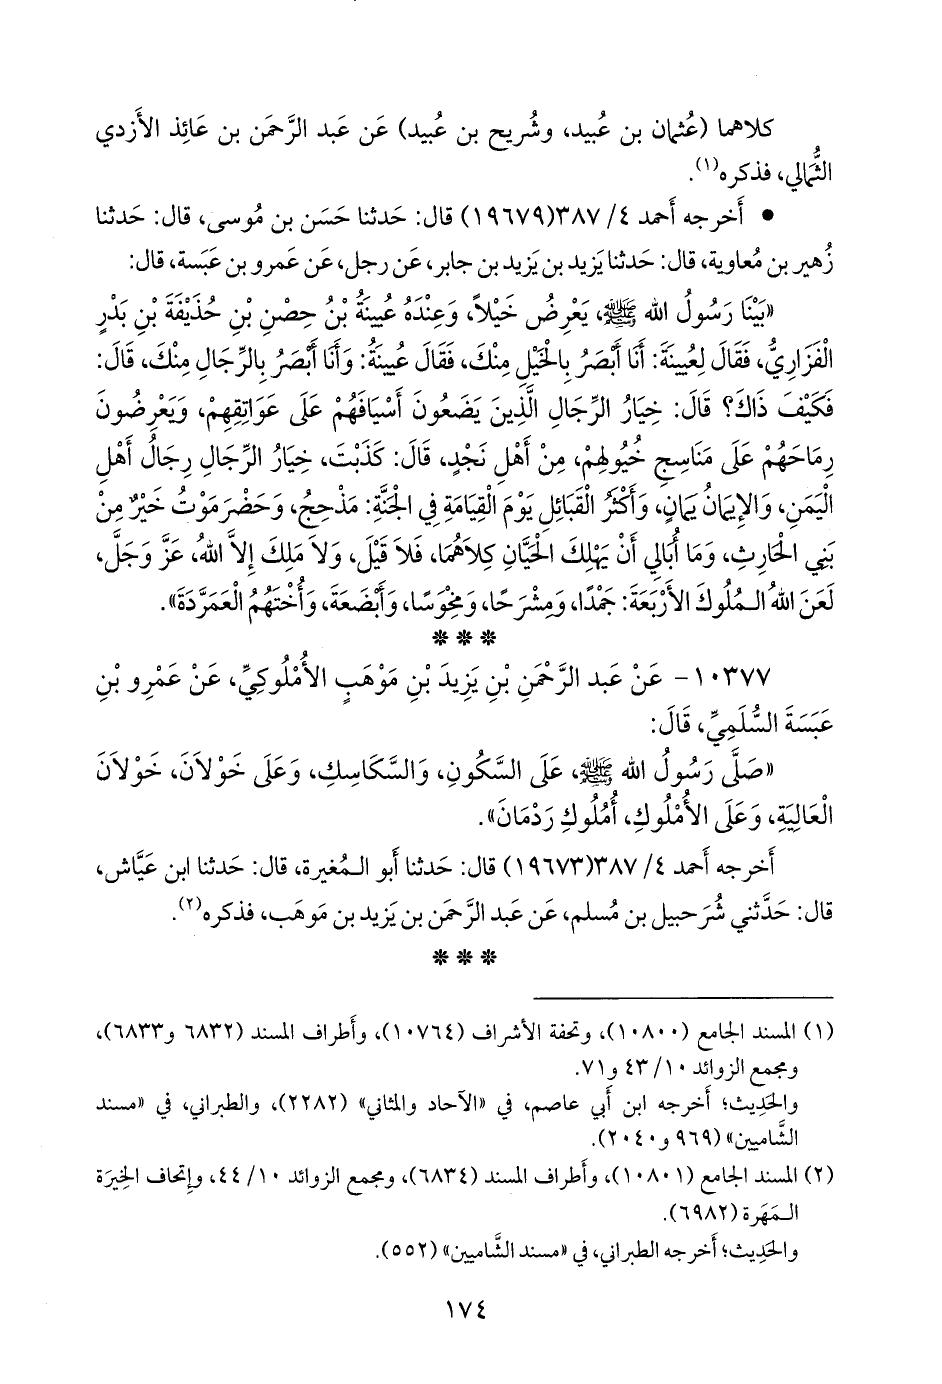 كلاهما (عُثمان بن عُبيد، وشُريح بن عُبيد) عَن عَبد الرَّحمَن بن عَائِذ الأَزدي
الثُّمالي، فذكره(١).
• أَخرجه أَحمد ٤/ ٣٨٧(١٩٦٧٩) قال: حَدثنا حَسَن بن مُوسى، قال: حَدثنا
زُهير بن مُعاوية، قال: حَدثنا يَزيد بن يَزيد بن جابر، عَن رجل، عَن عَمرو بن عَبَسة، قال:
«بَيْنَا رَسُولُ الله ﷺ، يَعْرِضُ خَيْلاً، وَعِنْدَهُ عُيينَةُ بْنُ حِصْنِ بْنِ حُذَيْفَةَ بْنِ بَدْرٍ
الْفَزَارِيُّ، فَقَالَ لِعُيينَةَ: أَنَا أَبْصَرُ بِالْخَيْلِ مِنْكَ، فَقَالَ عُيينَةُ: وَأَنَا أَبْصَرُ بِالرِّجَالِ مِنْكَ، قَالَ:
فَكَيْفَ ذَاكَ؟ قَالَ: خِيَارُ الرِّجَالِ الَّذِينَ يَضَعُونَ أَسْيَافَهُمْ عَلَى عَوَاتِقِهِمْ، وَيَعْرِضُونَ
رِمَاحَهُمْ عَلَى مَنَاسِجِ خُيُولِهِمْ، مِنْ أَهْلِ نَجْدٍ، قَالَ: كَذَبْتَ، خِيَارُ الرِّجَالِ رِجَالُ أَهْلِ
الْيَمَنِ، وَالإِيمَانُ يَمَانٍ، وَأَكْثَرُ الْقَبَائِلِ يَوْمَ الْقِيَامَةِ فِي الْجَنَّةِ: مَذْحِجُ، وَحَضْرَمَوْتُ خَيْرٌ مِنْ
بَنِي الْحَارِثِ، وَمَا أُبَالِي أَنْ يَهْلِكَ الْحَيَّانِ كِلاَهُمَا، فَلاَ قَيْلَ، وَلاَ مَلِكَ إِلاَّ اللهُ، عَزَّ وَجَلَّ،
لَعَنَ اللهُ الـمُلُوكَ الأَرْبَعَةَ: جَمْدًا، وَمِشْرَحًا، وَمِخْوَسًا، وَأَبْضَعَةَ، وَأُخْتَهُمُ الْعَمَرَّدَةَ».
* * *
١٠٣٧٧ - عَنْ عَبد الرَّحْمَنِ بْنِ يَزِيدَ بْنِ مَوْهَبٍ الأُمْلُوكِيِّ، عَنْ عَمْرِو بْنِ
عَبَسَةَ السُّلَمِيِّ، قَالَ:
«صَلَّى رَسُولُ الله ﷺ، عَلَى السَّكُونِ، وَالسَّكَاسِكِ، وَعَلَى خَوْلاَنَ، خَوْلاَنَ
الْعَالِيَةِ، وَعَلَى الأُمْلُوكِ، أُمْلُوكِ رَدْمَانَ».
أَخرجه أَحمد ٤/ ٣٨٧(١٩٦٧٣) قال: حَدثنا أَبو الـمُغيرة، قال: حَدثنا ابن عَيَّاش،
قال: حَدَّثني شُرَحبيل بن مُسلم، عَن عَبد الرَّحمَن بن يَزيد بن مَوهَب، فذكره(٢).
* * *
(١) المسند الجامع (١٠٨٠٠)، وتحفة الأشراف (١٠٧٦٤)، وأَطراف المسند (٦٨٣٢ و٦٨٣٣)،
ومجمع الزوائد ١٠/ ٤٣ و٧١.
والحَدِيث؛ أَخرجه ابن أَبي عاصم، في «الآحاد والمثاني» (٢٢٨٢)، والطبراني، في «مسند
الشَّاميين» (٩٦٩ و٢٠٤٠).
(٢) المسند الجامع (١٠٨٠١)، وأَطراف المسند (٦٨٣٤)، ومجمع الزوائد ١٠/ ٤٤، وإِتحاف الخِيرَة
الـمَهَرة (٦٩٨٢).
والحَدِيث؛ أَخرجه الطبراني، في «مسند الشَّاميين» (٥٥٢).
١٧٤